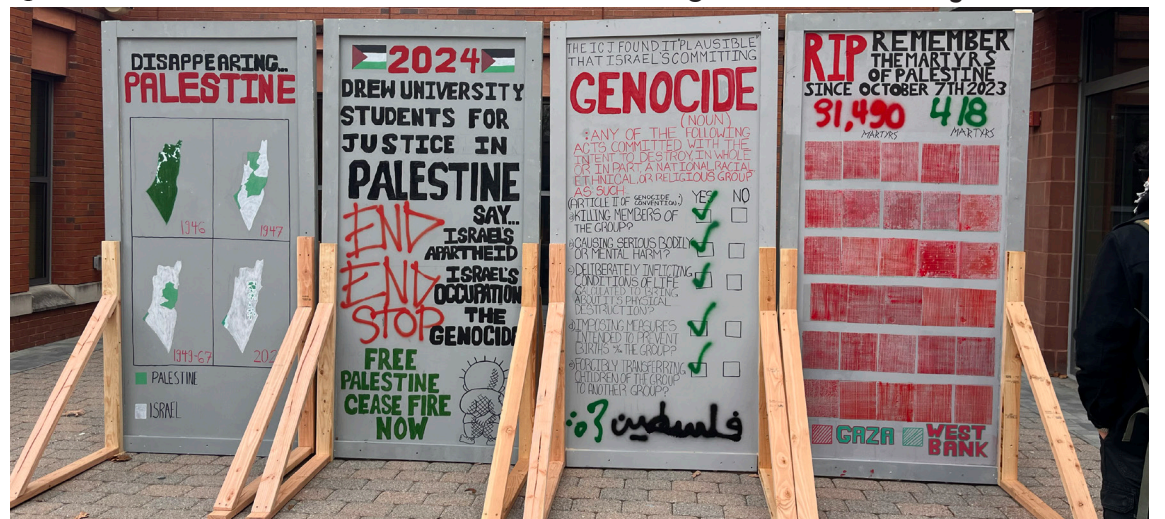 DISAPPEARING...
PALESTINE
1946
1947
1949-67
PALESTINE
ISRAEL
2024
DREW UNIVERSITY
STUDENTS FOR
JUSTICE IN
PALESTINE
END SAY...
ISRAEL'S
APARTHEID
END ISRAEL'S
OCCUPATION
STOP THE
GENOCIDE
FREE
PALESTINE
CEASE FIRE
NOW
THE ICJ FOUND IT "PLAUSIBLE"
THAT ISRAEL'S COMMITTING
GENOCIDE
(NOUN)
: ANY OF THE FOLLOWING
ACTS COMMITTED WITH THE
INTENT TO DESTROY, IN WHOLE
OR IN PART, A NATIONAL, RACIAL
ETHNICAL, OR RELIGIOUS GROUP
AS SUCH...
(ARTICLE II OF GENOCIDE CONVENTION:) YES NO
KILLING MEMBERS OF
THE GROUP?
CAUSING SERIOUS BODILY
OR MENTAL HARM?
DELIBERATELY INFLICTING
CONDITIONS OF LIFE
CALCULATED TO BRING
ABOUT ITS PHYSICAL
DESTRUCTION?
IMPOSING MEASURES
INTENDED TO PREVENT
BIRTHS THE GROUP?
FORCIBLY TRANSFERRING
CHILDREN OF THE GROUP
TO ANOTHER GROUP?
فلسطين
RIP REMEMBER
THE MARTYRS
OF PALESTINE
SINCE OCTOBER 7TH 2023
31,490 418
MARTYRS MARTYRS
GAZA WEST
BANK